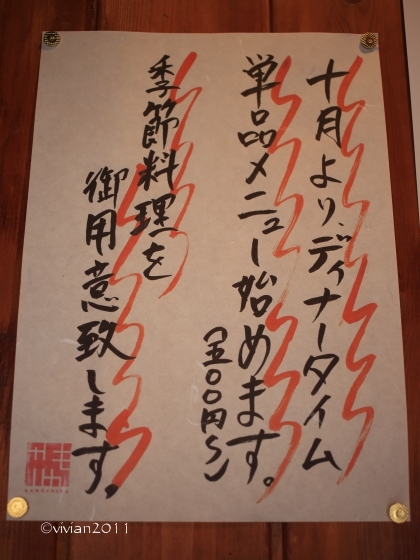 十月より、ディナータイム
単品メニュー始めます。
(五〇〇円〜)
季節料理を
御用意致します。
©vivian2011